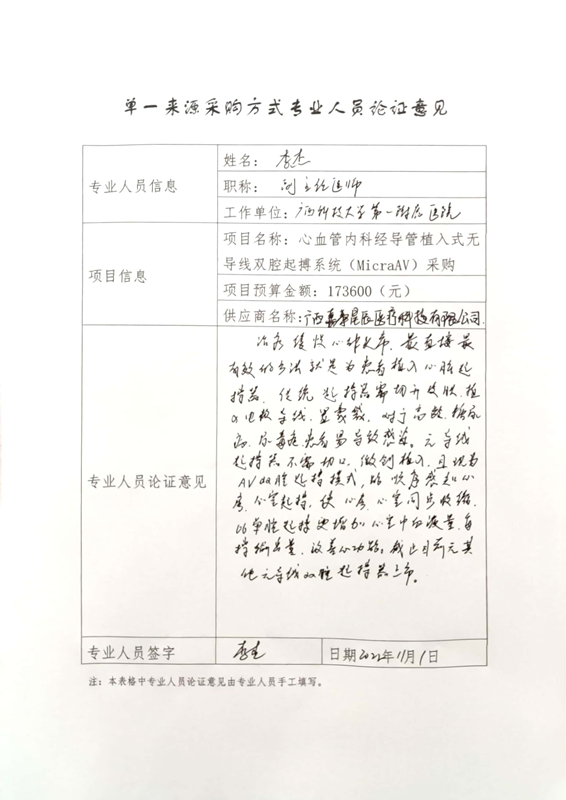 单一来源采购方式专业人员论证意见
专业人员信息
姓名：李杰
职称：副主任医师
工作单位：广西科技大学第一附属医院
项目信息
项目名称：心血管内科经导管植入式无
导线双腔起搏系统（MicraAV）采购
项目预算金额：173600（元）
供应商名称：广西嘉泰星辰医疗科技有限公司
专业人员论证意见
治疗缓慢心律失常，最直接最
有效的方法就是为患者植入心脏起
搏器。传统起搏器需切开皮肤，植
入电极导线，显
对于高龄、糖尿
病、尿毒症患者易导致感染。无导线
起搏器不需切口，微创植入，且现为
AV双腔起搏模式，能顺序感知心
房、心室起搏，使心房、心室同步收缩，
比单腔起搏更增加心室
量，每
搏输出量，改善心功能。截止目前无其
他无导线双腔起搏器上市。
专业人员签字
李杰
日期2022年11月1日
注：本表格中专业人员论证意见由专业人员手工填写。